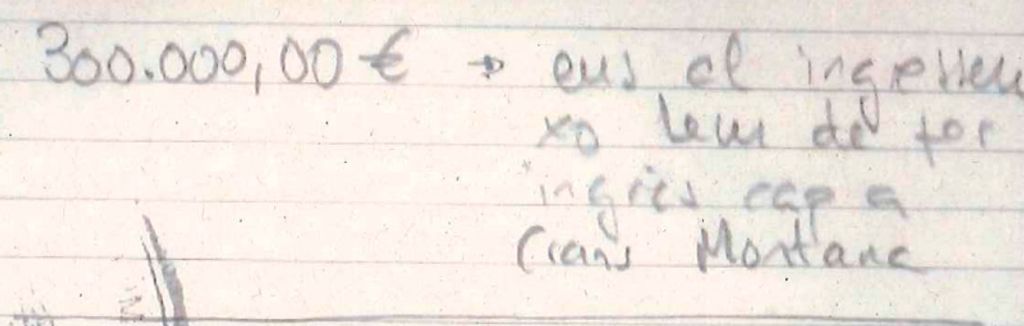 300.000,00 € → ens el ingressen
xo hem de fer
ingrés cap a
Crans Montana